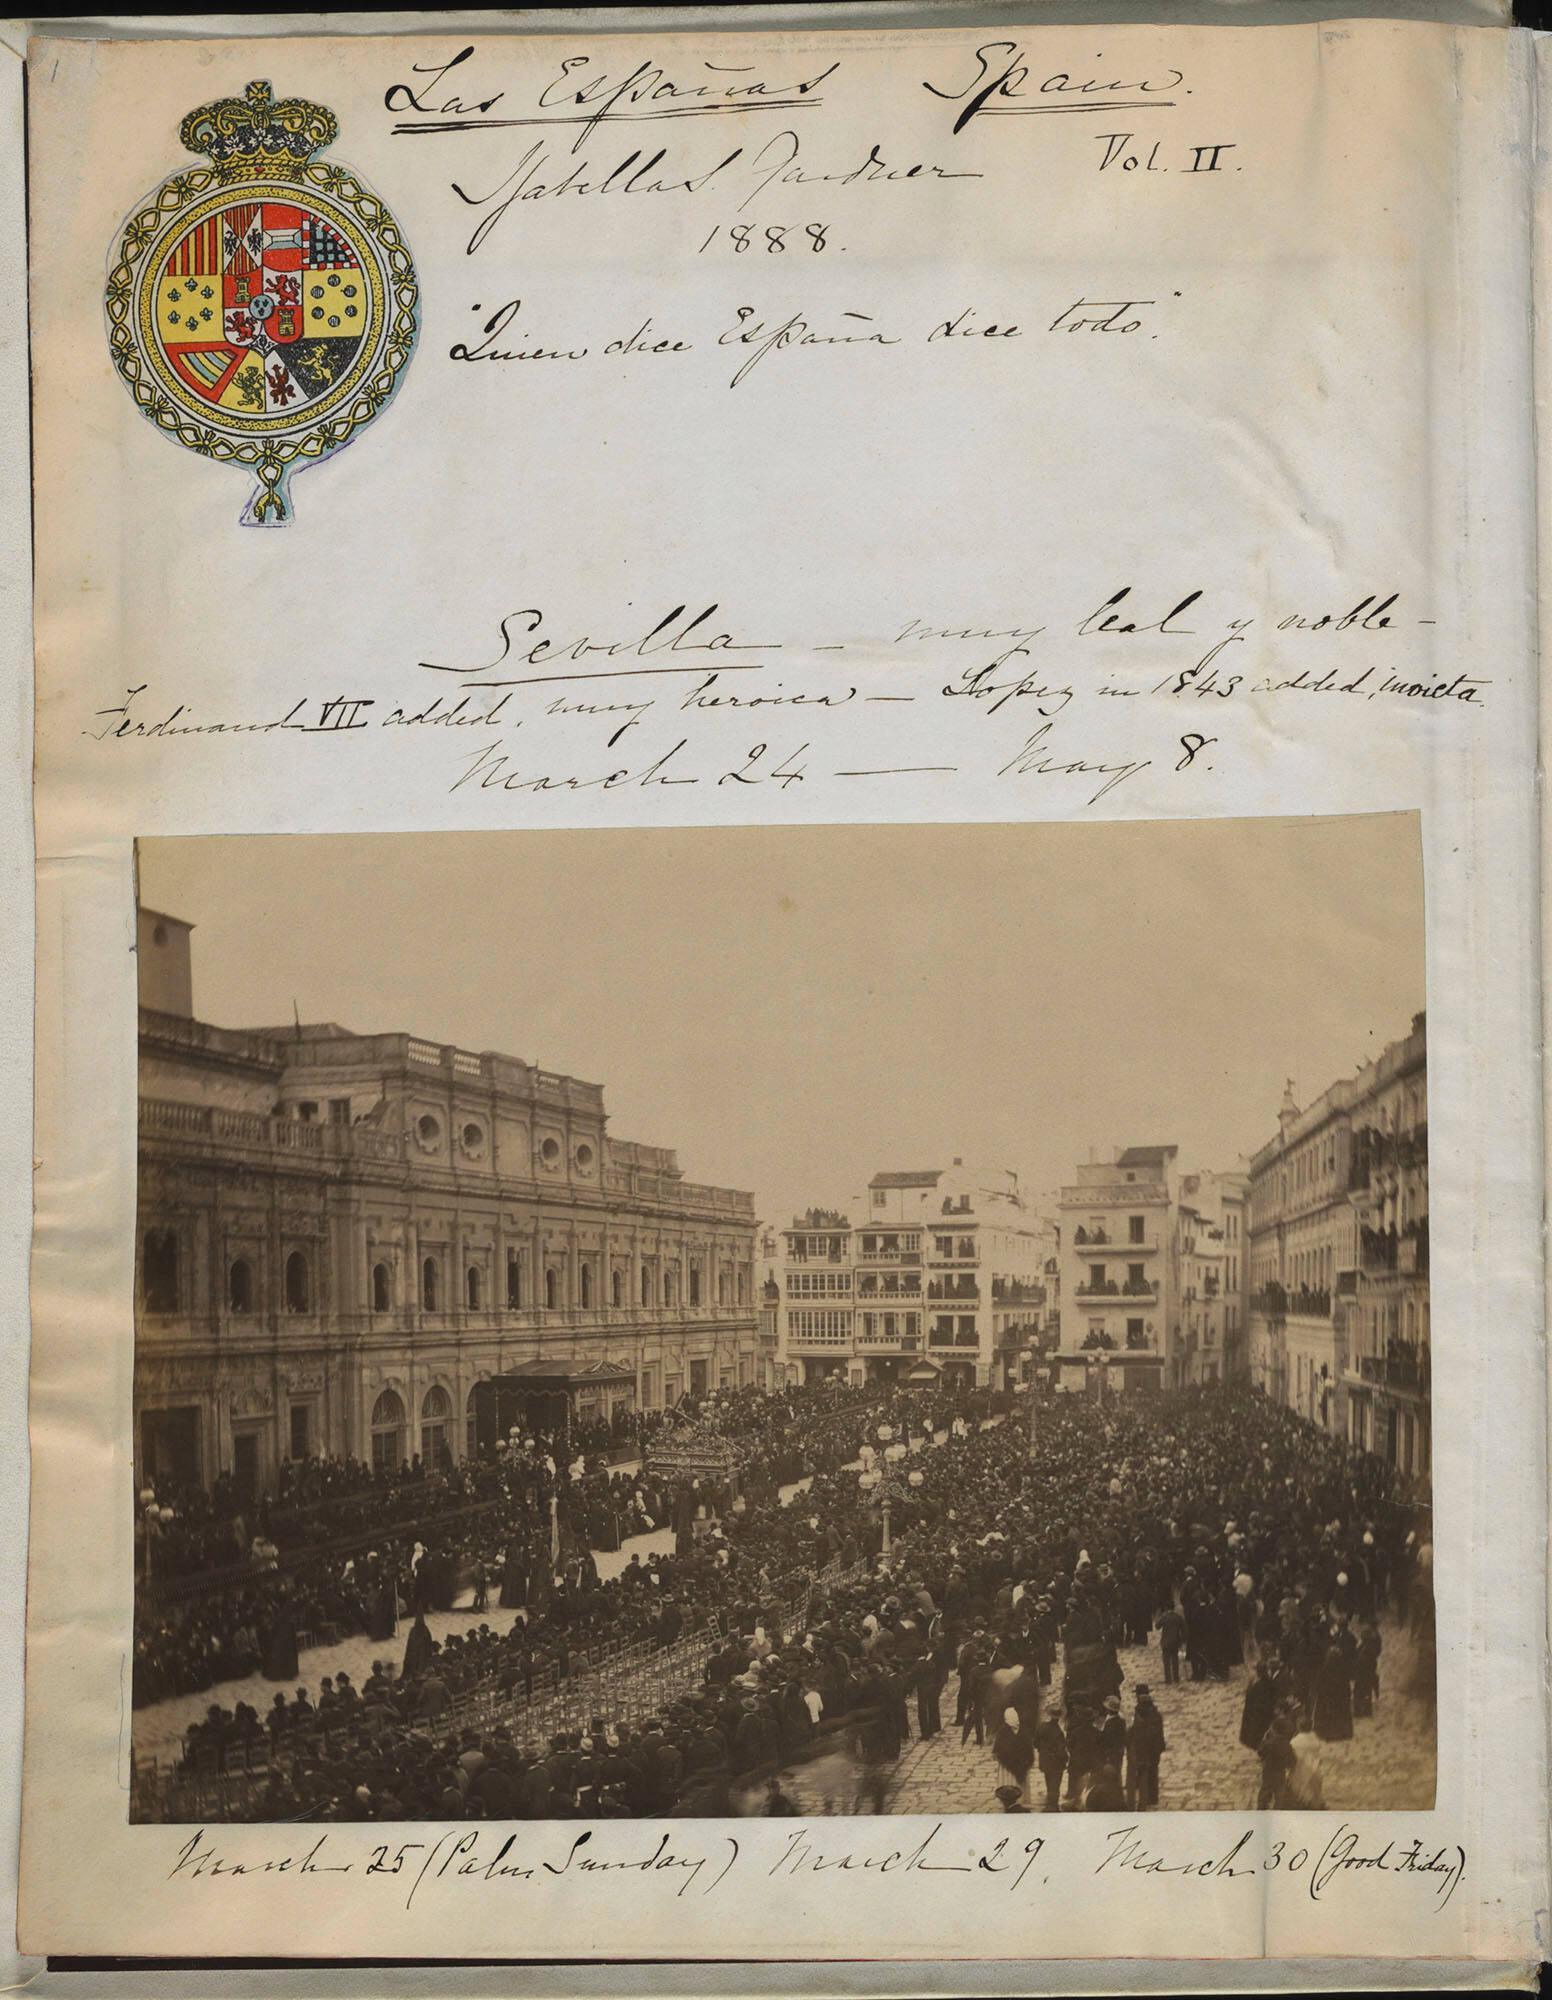 1
Las Españas Spain.
Isabella S. Gardner Vol. II.
1888.
"Quien dice España dice todo."
Sevilla — muy leal y noble —
Ferdinand VII added, muy heroica — Lopez in 1843 added, invicta.
March 24 — May 8.
March 25 (Palm Sunday) March 29. March 30 (Good Friday).